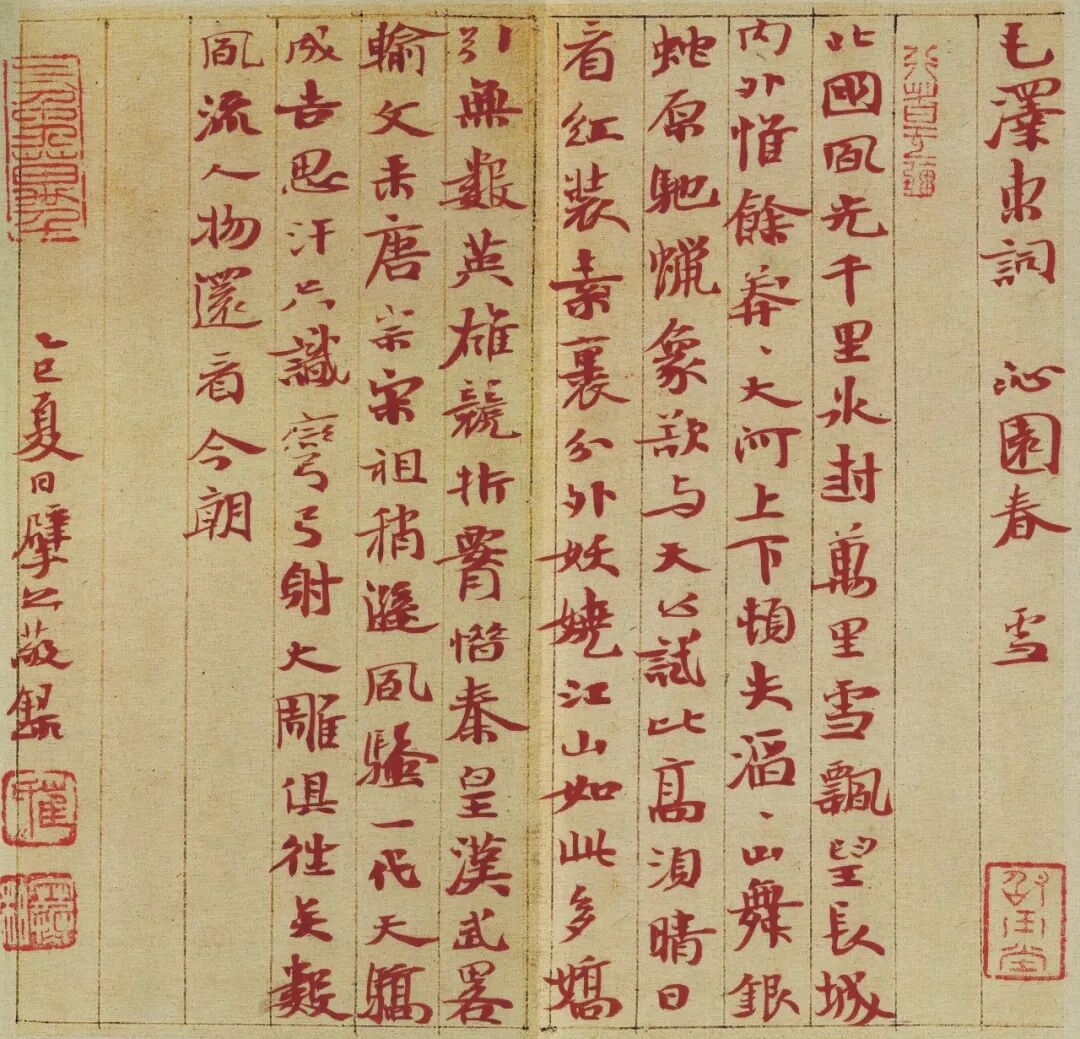 毛澤東詞 沁園春 雪
北國風光千里冰封萬里雪飄望長城
内外惟餘莽、大河上下頓失滔、山舞銀
蛇原馳蠟象欲与天公試比高須晴日
看紅裝素裹分外妖嬈江山如此多嬌
引無數英雄競折腰惜秦皇漢武畧
輸文采唐宗宋祖稍遜風騷一代天驕
成吉思汗只識彎弓射大雕俱往矣數
風流人物還看今朝
乙巳夏日擘公敬録